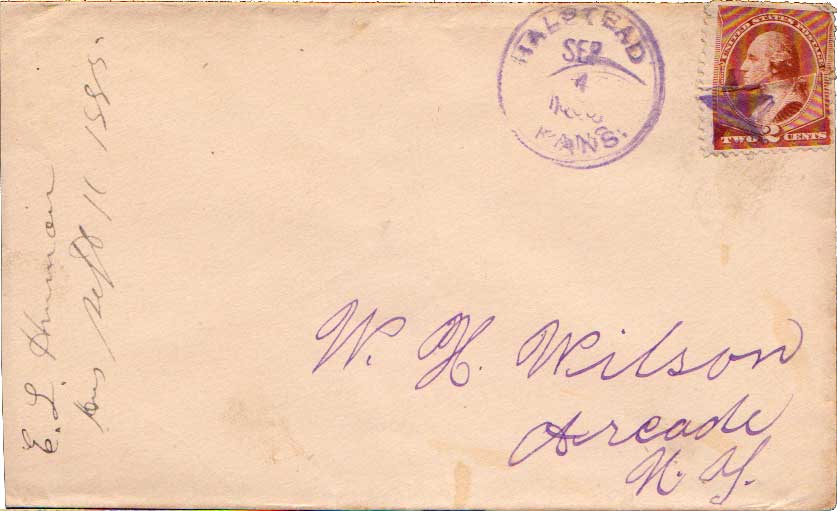 HALSTEAD
SEP
4
KANS.
UNITED STATES POSTAGE
TWO 2 CENTS
W. H. Wilson
Arcade
N. Y.
E. L.
Sept 11 1885.